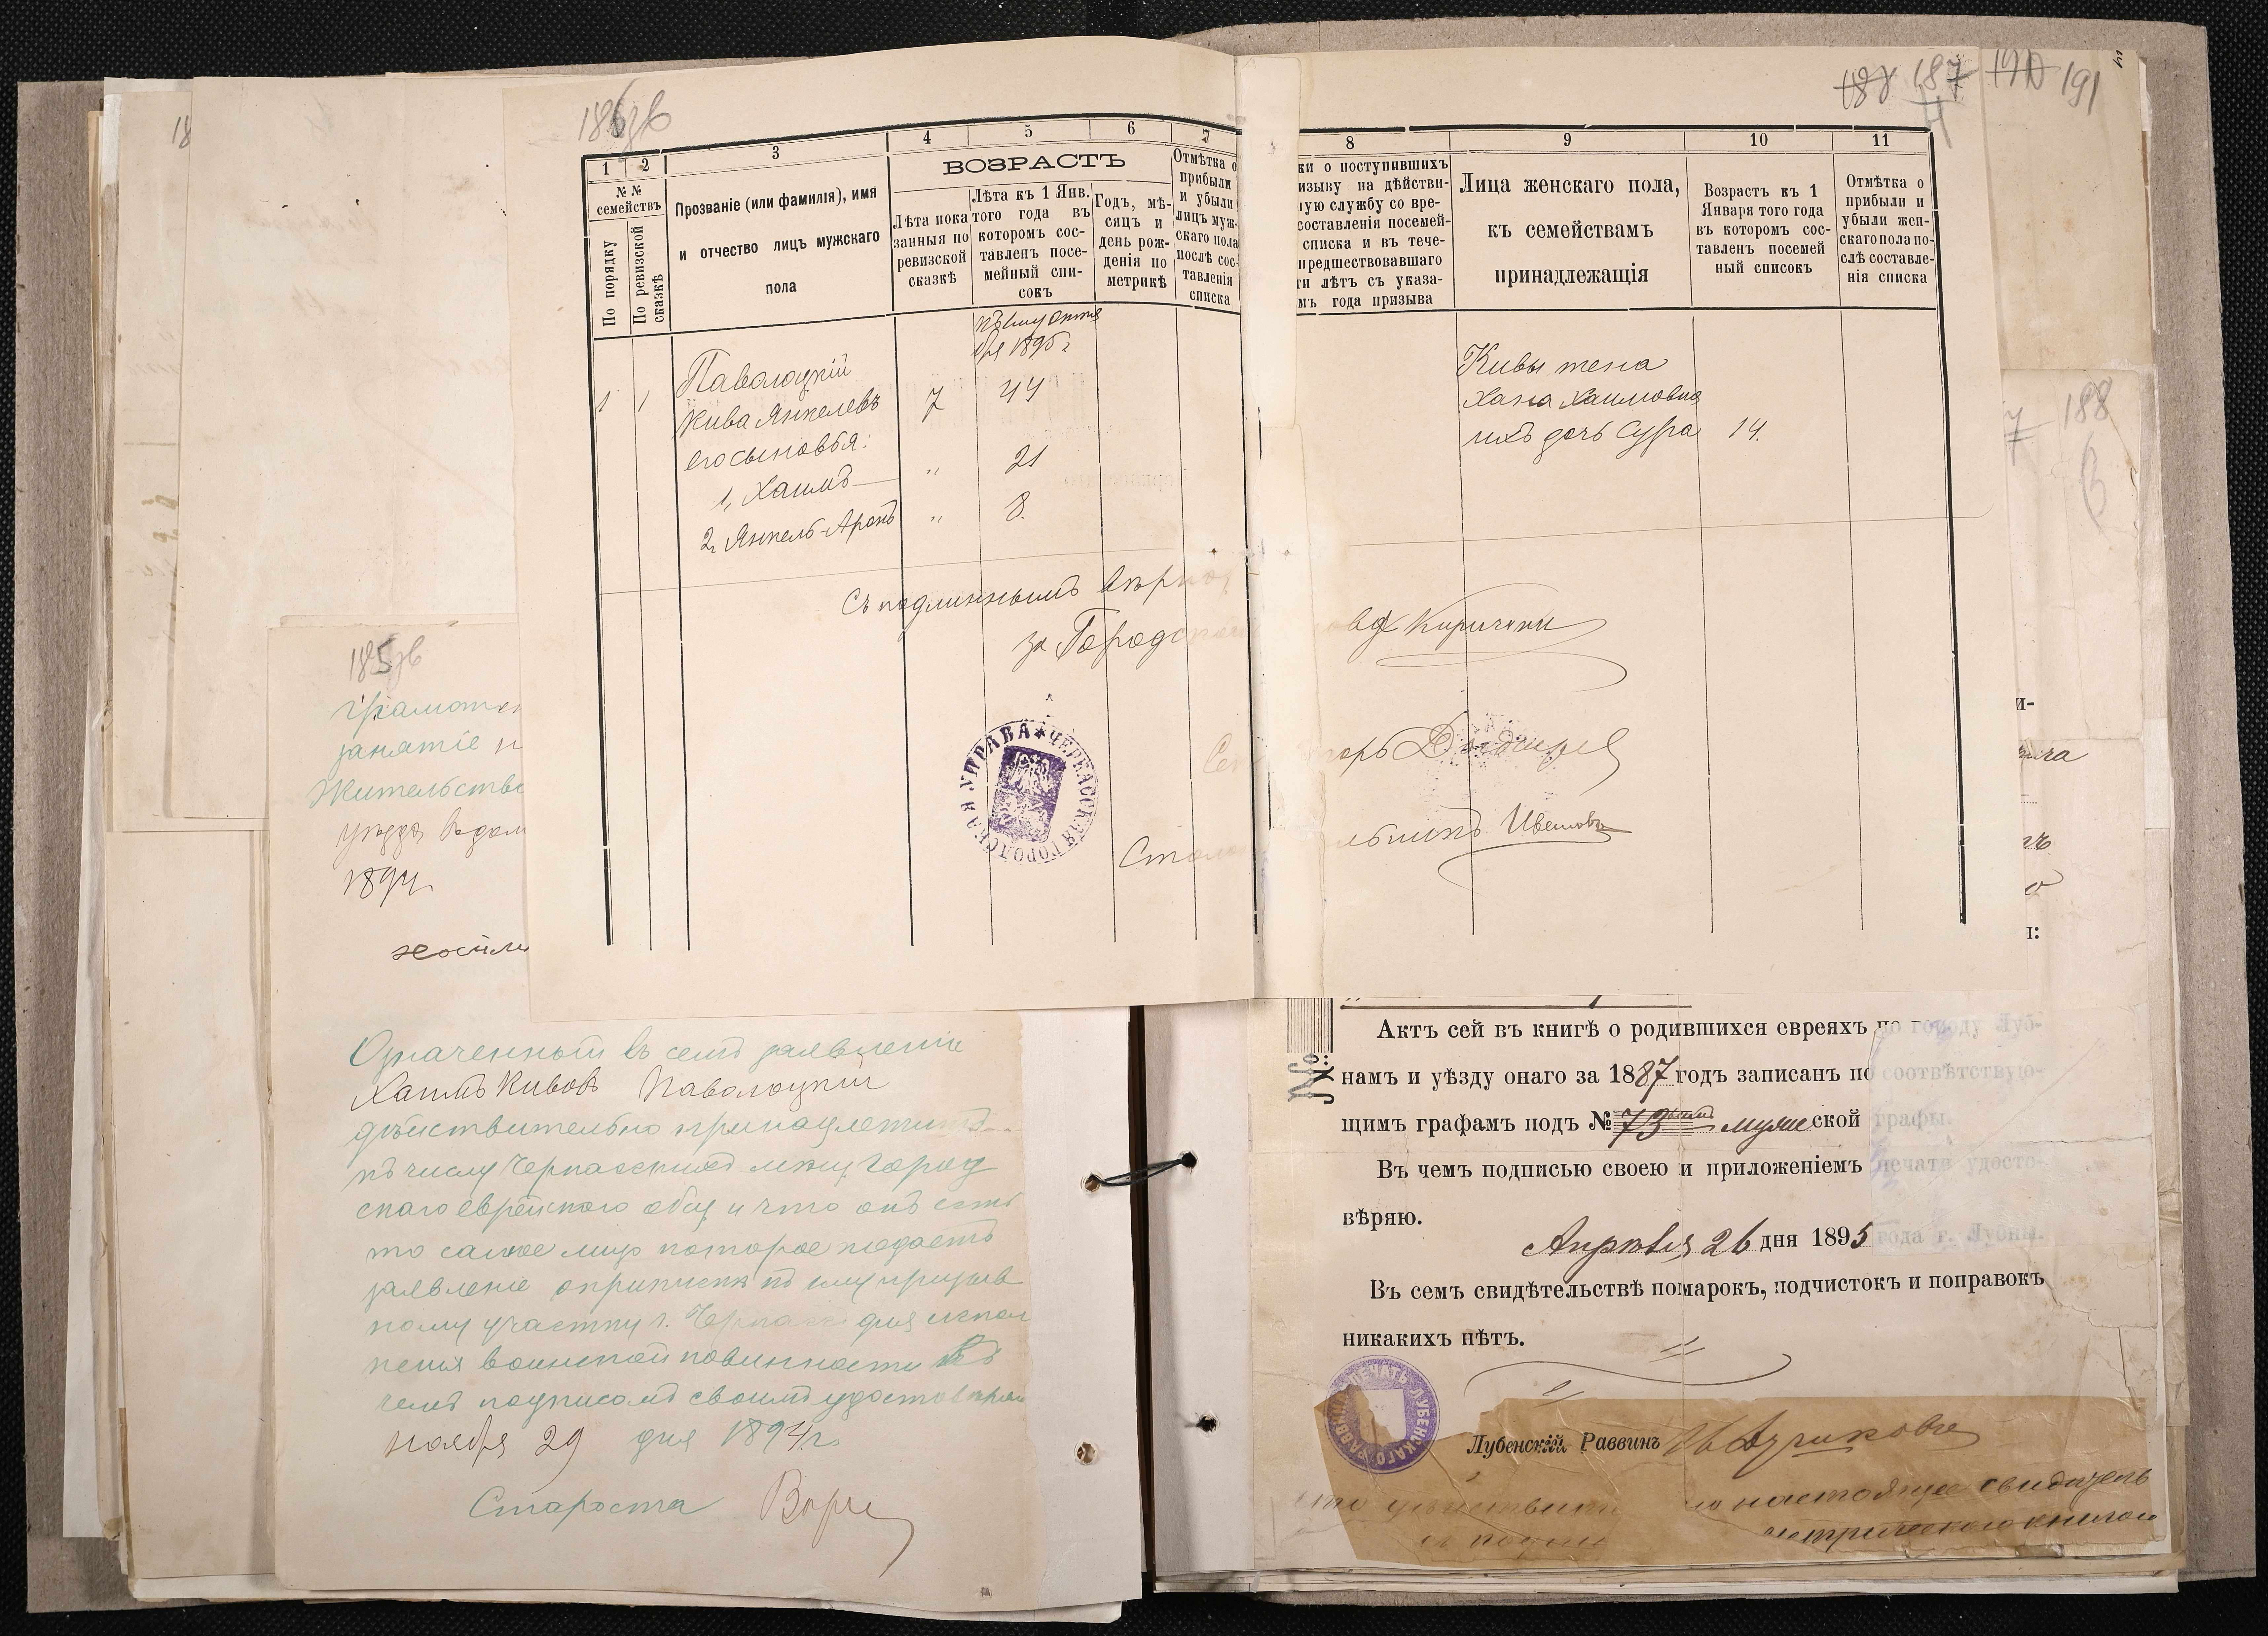 186 об
187
191
1
2
3
4
5
6
7
№ №
семействъ
По порядку
По ревизской
сказкѣ
Прозваніе (или фамилія), имя
и отчество лицъ мужскаго
пола
ВОЗРАСТЪ
Лѣта пока
занныя по
ревизской
сказкѣ
Лѣта къ 1 Янв.
того года въ
которомъ сос-
тавленъ посе-
мейный спи-
сокъ
Годъ, мѣ-
сяцъ и
день рож-
денія по
метрикѣ
Отмѣтка о
прибыли
и убыли
лицъ муж-
скаго пола
послѣ сос-
тавленія
списка
8
9
10
11
ки о поступившихъ
изыву на дѣйстви-
ную службу со вре-
составленія посемей-
списка и въ тече-
предшествовавшаго
ти лѣтъ съ указа-
мъ года призыва
Лица женскаго пола,
къ семействамъ
принадлежащія
Возрастъ къ 1
Января того года
въ которомъ сос-
тавленъ посемей
ный списокъ
Отмѣтка о
прибыли и
убыли жен-
скаго пола по-
слѣ составле-
нія списка
1895 г
1 1 Паволоцкій
Кива Янкелевъ 7 44
его сыновья:
1, Хаимъ — " 21
2, Янкель-Аронъ " 8.
Кивы жена
Хана Хаимовна
ихъ дочь Сура 14.
Съ подлиннымъ вѣрно,
за Город
Киричени
Сек торъ
Стол
ЧЕРКАССКАЯ ГОРОДСКАЯ УПРАВА
185 об
грамотен
занятіе
Жительство
уѣзда
1894.
Означенный въ семъ заявленіи
Хаимъ Кивовъ Паволоцкій
дѣйствительно принадлежитъ
къ числу Черкасскихъ мѣщ город
скаго еврейскаго общ и что онъ есть
то самое лицо которое подаетъ
заявленіе о припискѣ къ призыв
ному участку г. Черкасс для испол
ненія воинской повинности въ
чемъ подписомъ своимъ удостовѣряю
ноября 29 дня 1894 г.
Староста
188
№:
Актъ сей въ книгѣ о родившихся евреяхъ по городу Луб-
намъ и уѣзду онаго за 1887 годъ записанъ по соотвѣтствую-
щимъ графамъ подъ № 73 мужеской графы.
Въ чемъ подписью своею и приложеніемъ печати удосто-
вѣряю.
Апрѣля 26 дня 1895 года г. Лубны.
Въ семъ свидѣтельствѣ помарокъ, подчистокъ и поправокъ
никакихъ нѣтъ.
ПЕЧАТЬ ЛУБЕНСКАГО РАВВИНА
Лубенскій Раввинъ
настоящее свидѣтель